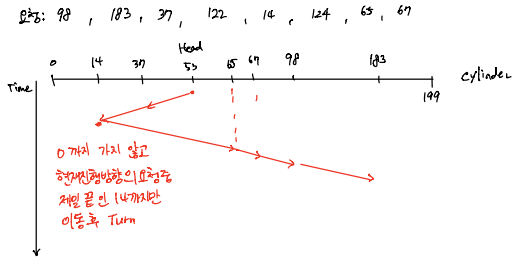 요청: 98 , 183 , 37 , 122 , 14 , 124 , 65 , 67
Head
0 14 37 53 65 67 98 183 199
Cylinder
Time
0까지 가지 않고
현재진행방향의 요청중
제일 끝인 14까지만
이동후 Turn